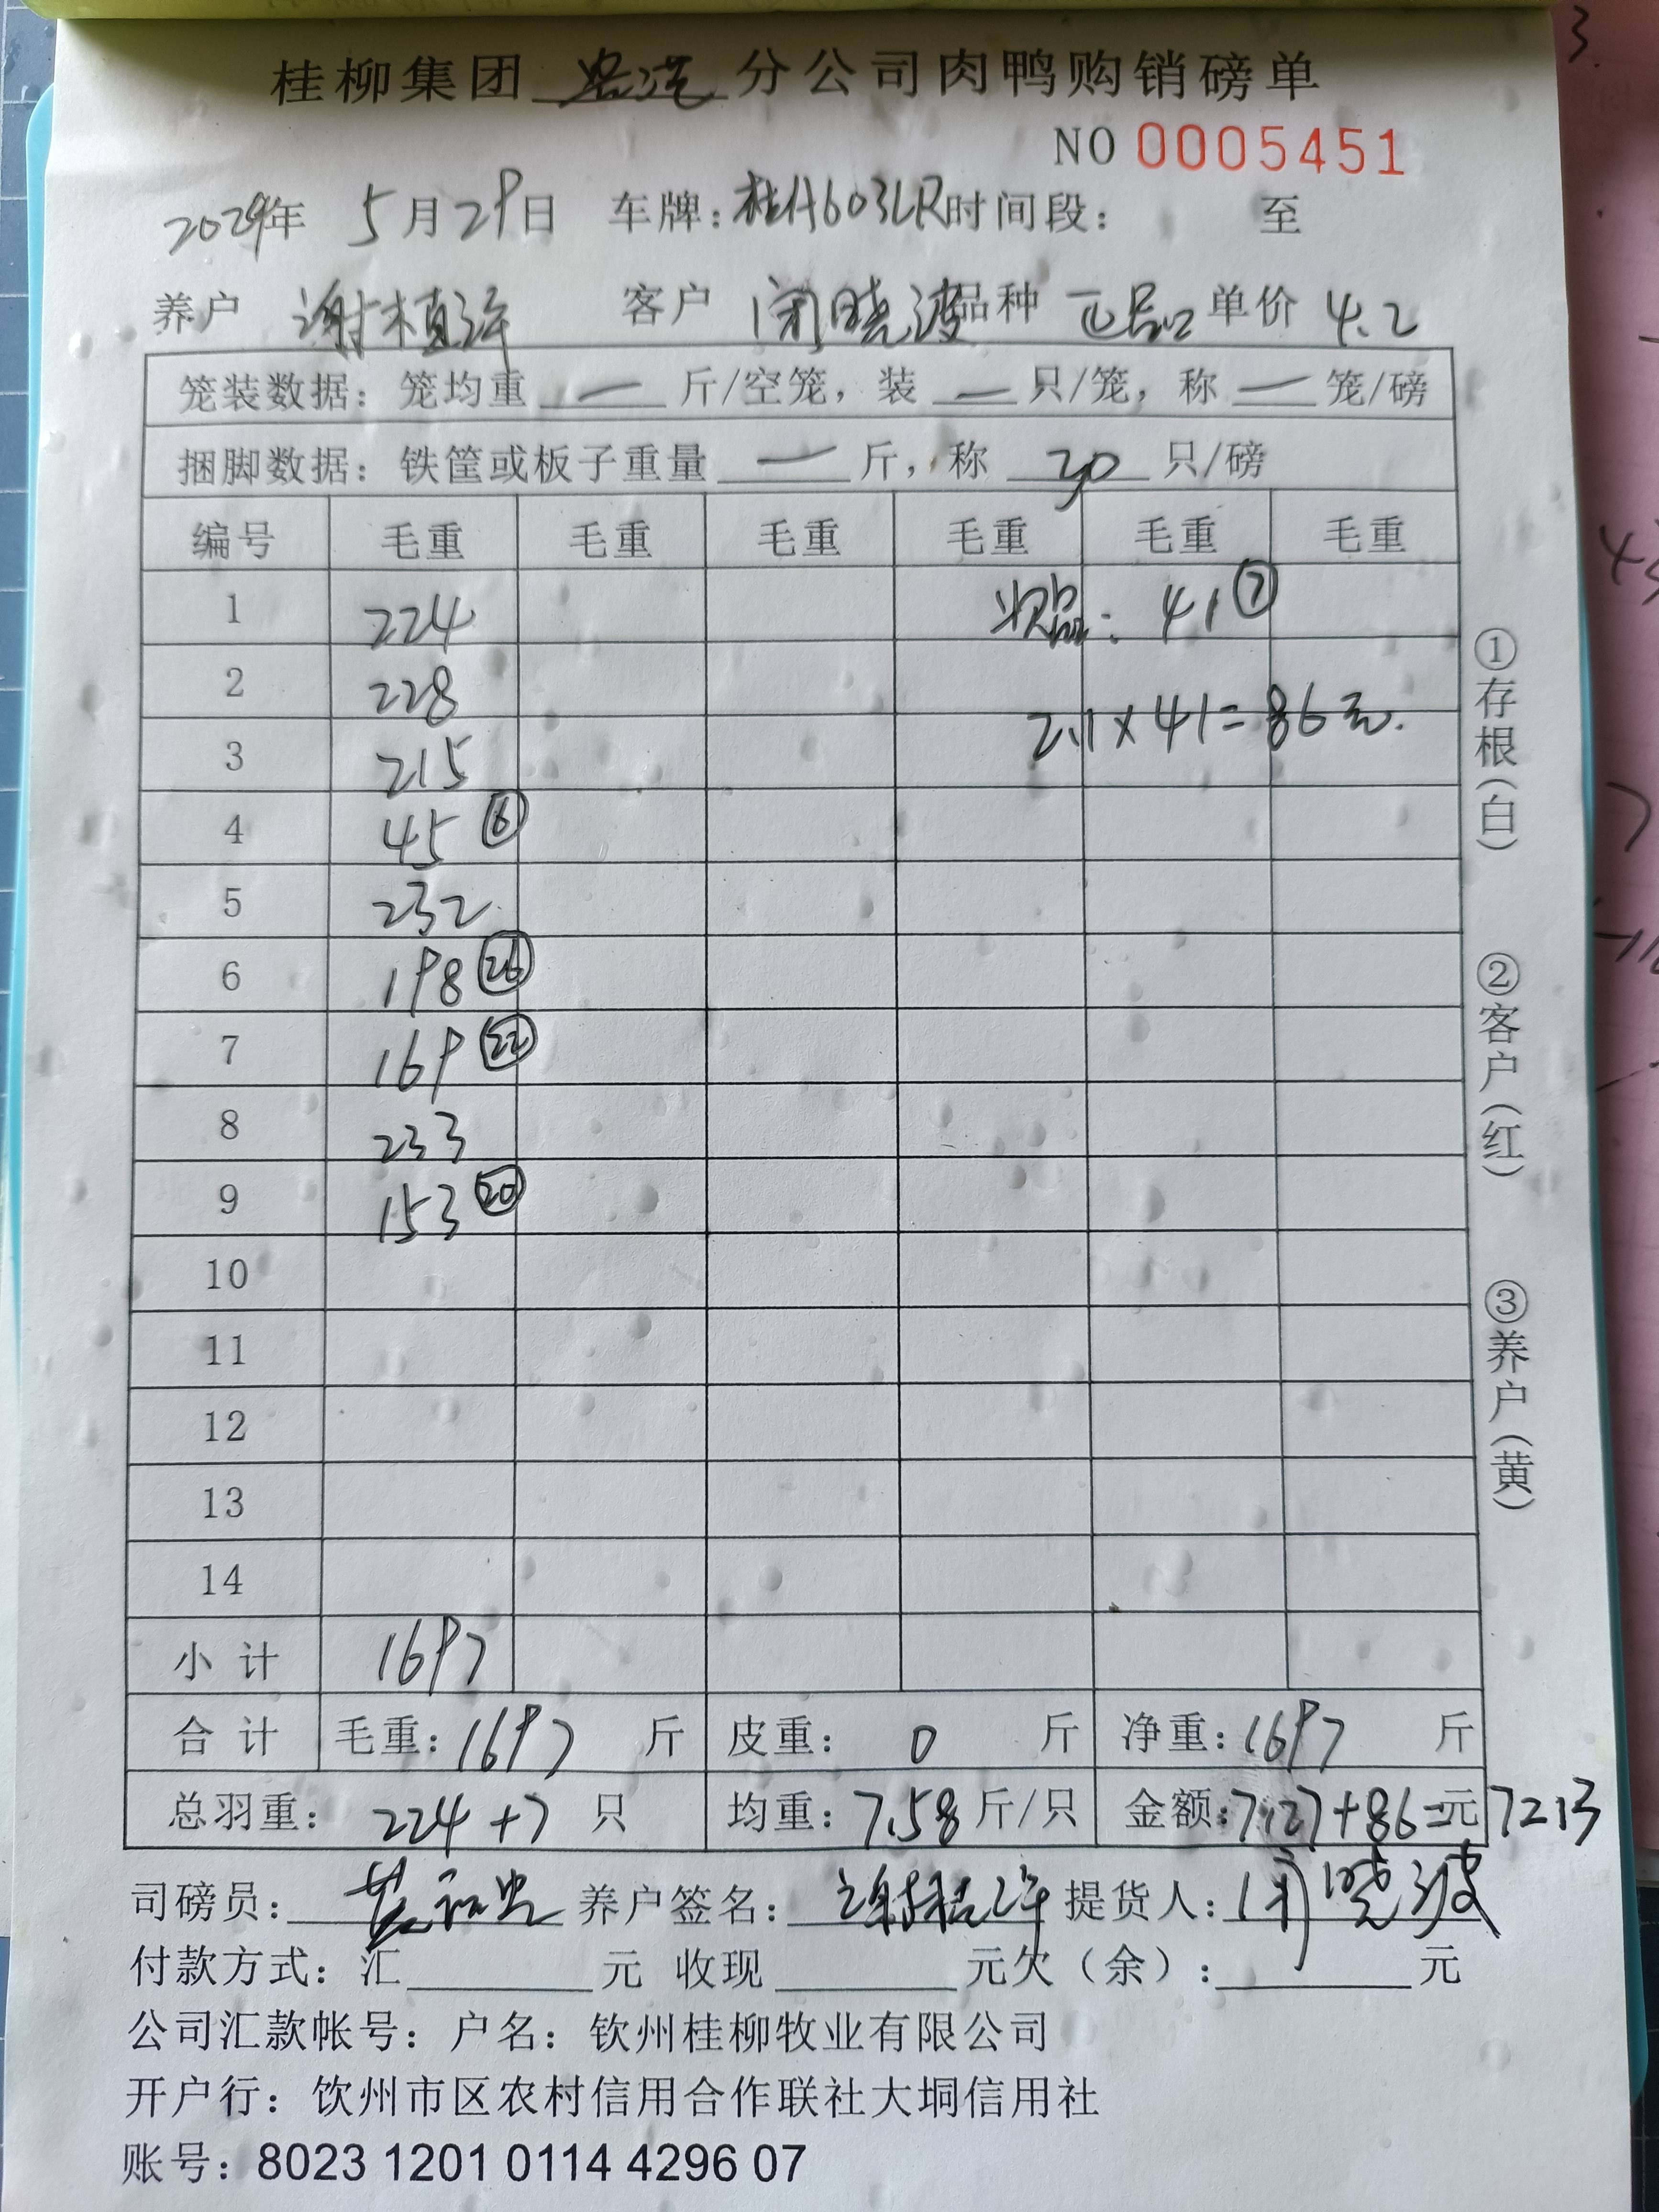 桂柳集团 分公司肉鸭购销磅单
NO 0005451
2024年 5月29日 车牌：桂A603LR 时间段： 至
养户 谢植许 客户 闭晓波 品种 正品 单价 4.2
笼装数据：笼均重 — 斤/空笼，装 — 只/笼，称 — 笼/磅
捆脚数据：铁筐或板子重量 — 斤，称 30 只/磅
编号 毛重 毛重 毛重 毛重 毛重 毛重
1 224 次品：41 ⑦
2 228 2.1×41=86元.
3 215
4 45 ⑥
5 232
6 198 ㉖
7 169 ㉒
8 233
9 153 ⑳
10
11
12
13
14
小计 1697
合计 毛重：1697 斤 皮重：0 斤 净重：1697 斤
总羽重：224+7 只 均重：7.58斤/只 金额：7127+86=元7213
司磅员： 养户签名：谢植许 提货人：闭晓波
付款方式：汇 元 收现 元欠（余）： 元
公司汇款帐号：户名：钦州桂柳牧业有限公司
开户行：饮州市区农村信用合作联社大垌信用社
账号：8023 1201 0114 4296 07
①存根（白）
②客户（红）
③养户（黄）